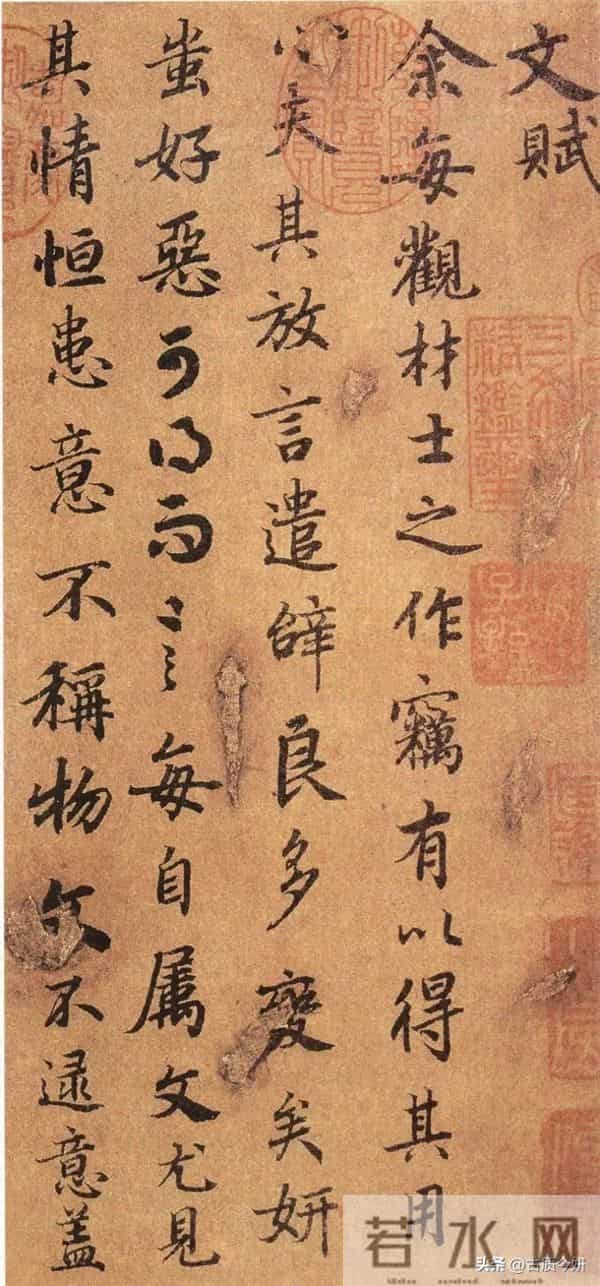 文賦
余每觀材士之作竊有以得其用
心夫其放言遣辭良多變矣妍
蚩好惡可得而言每自屬文尤見
其情恒患意不稱物文不逮意蓋
若水网
头条 @古质今妍